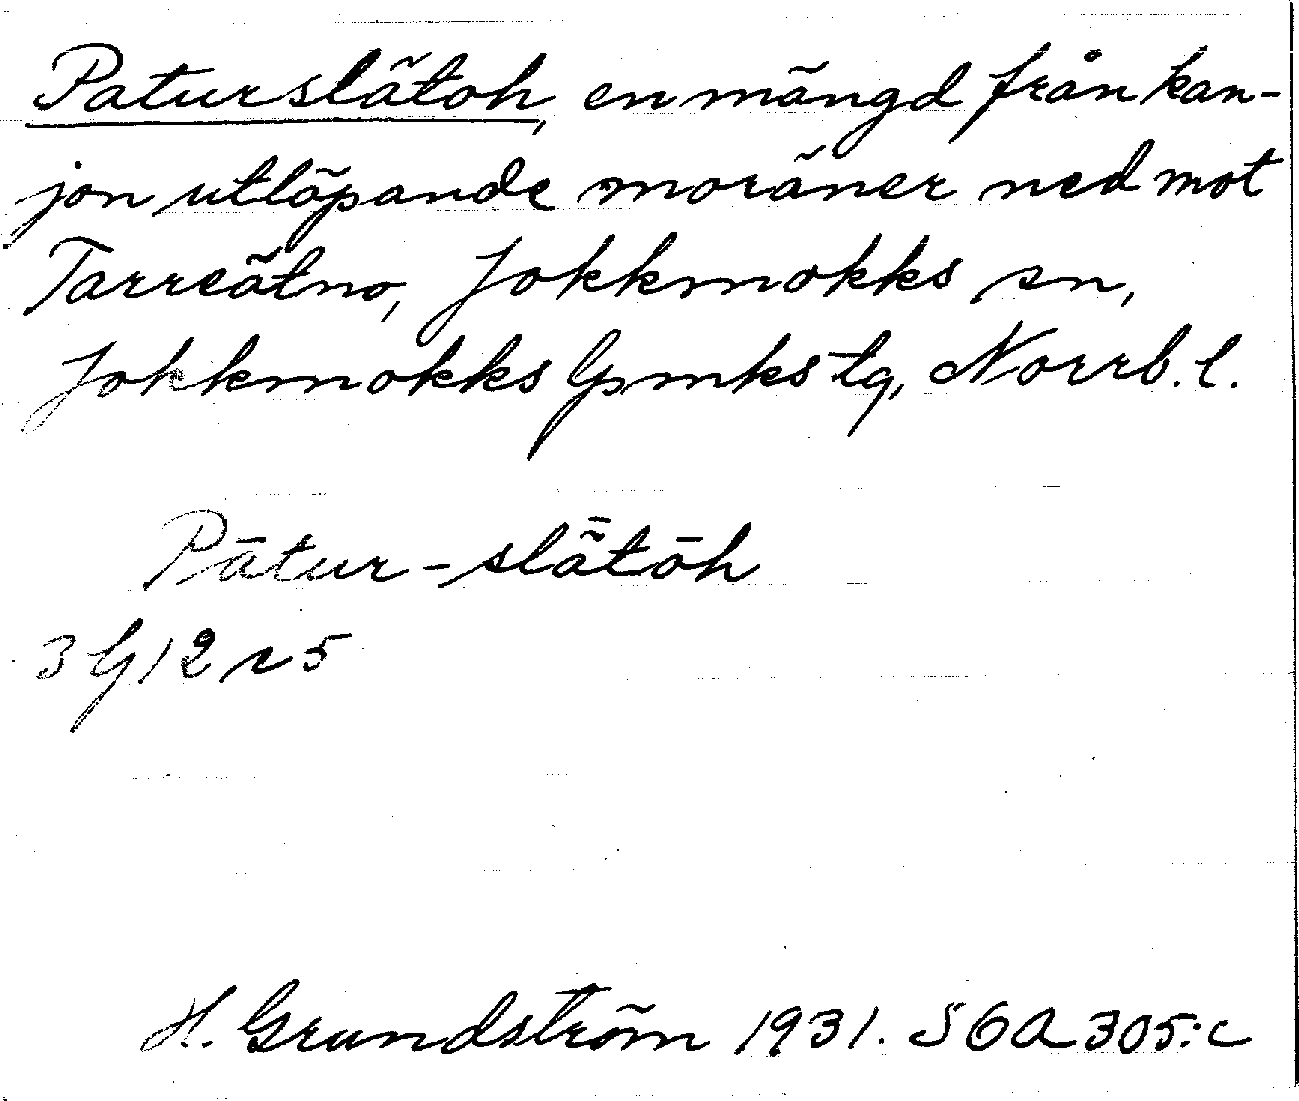 Paturslätoh, en mängd från kan-
jon utlöpande moräner ned mot
Tarreätno, Jokkmokks sn,
Jokkmokks lpmks tg, Norrb. l.
Pātur-slǟtōh
3 G 12 r 5
H. Grundström 1931. SOA 305:c